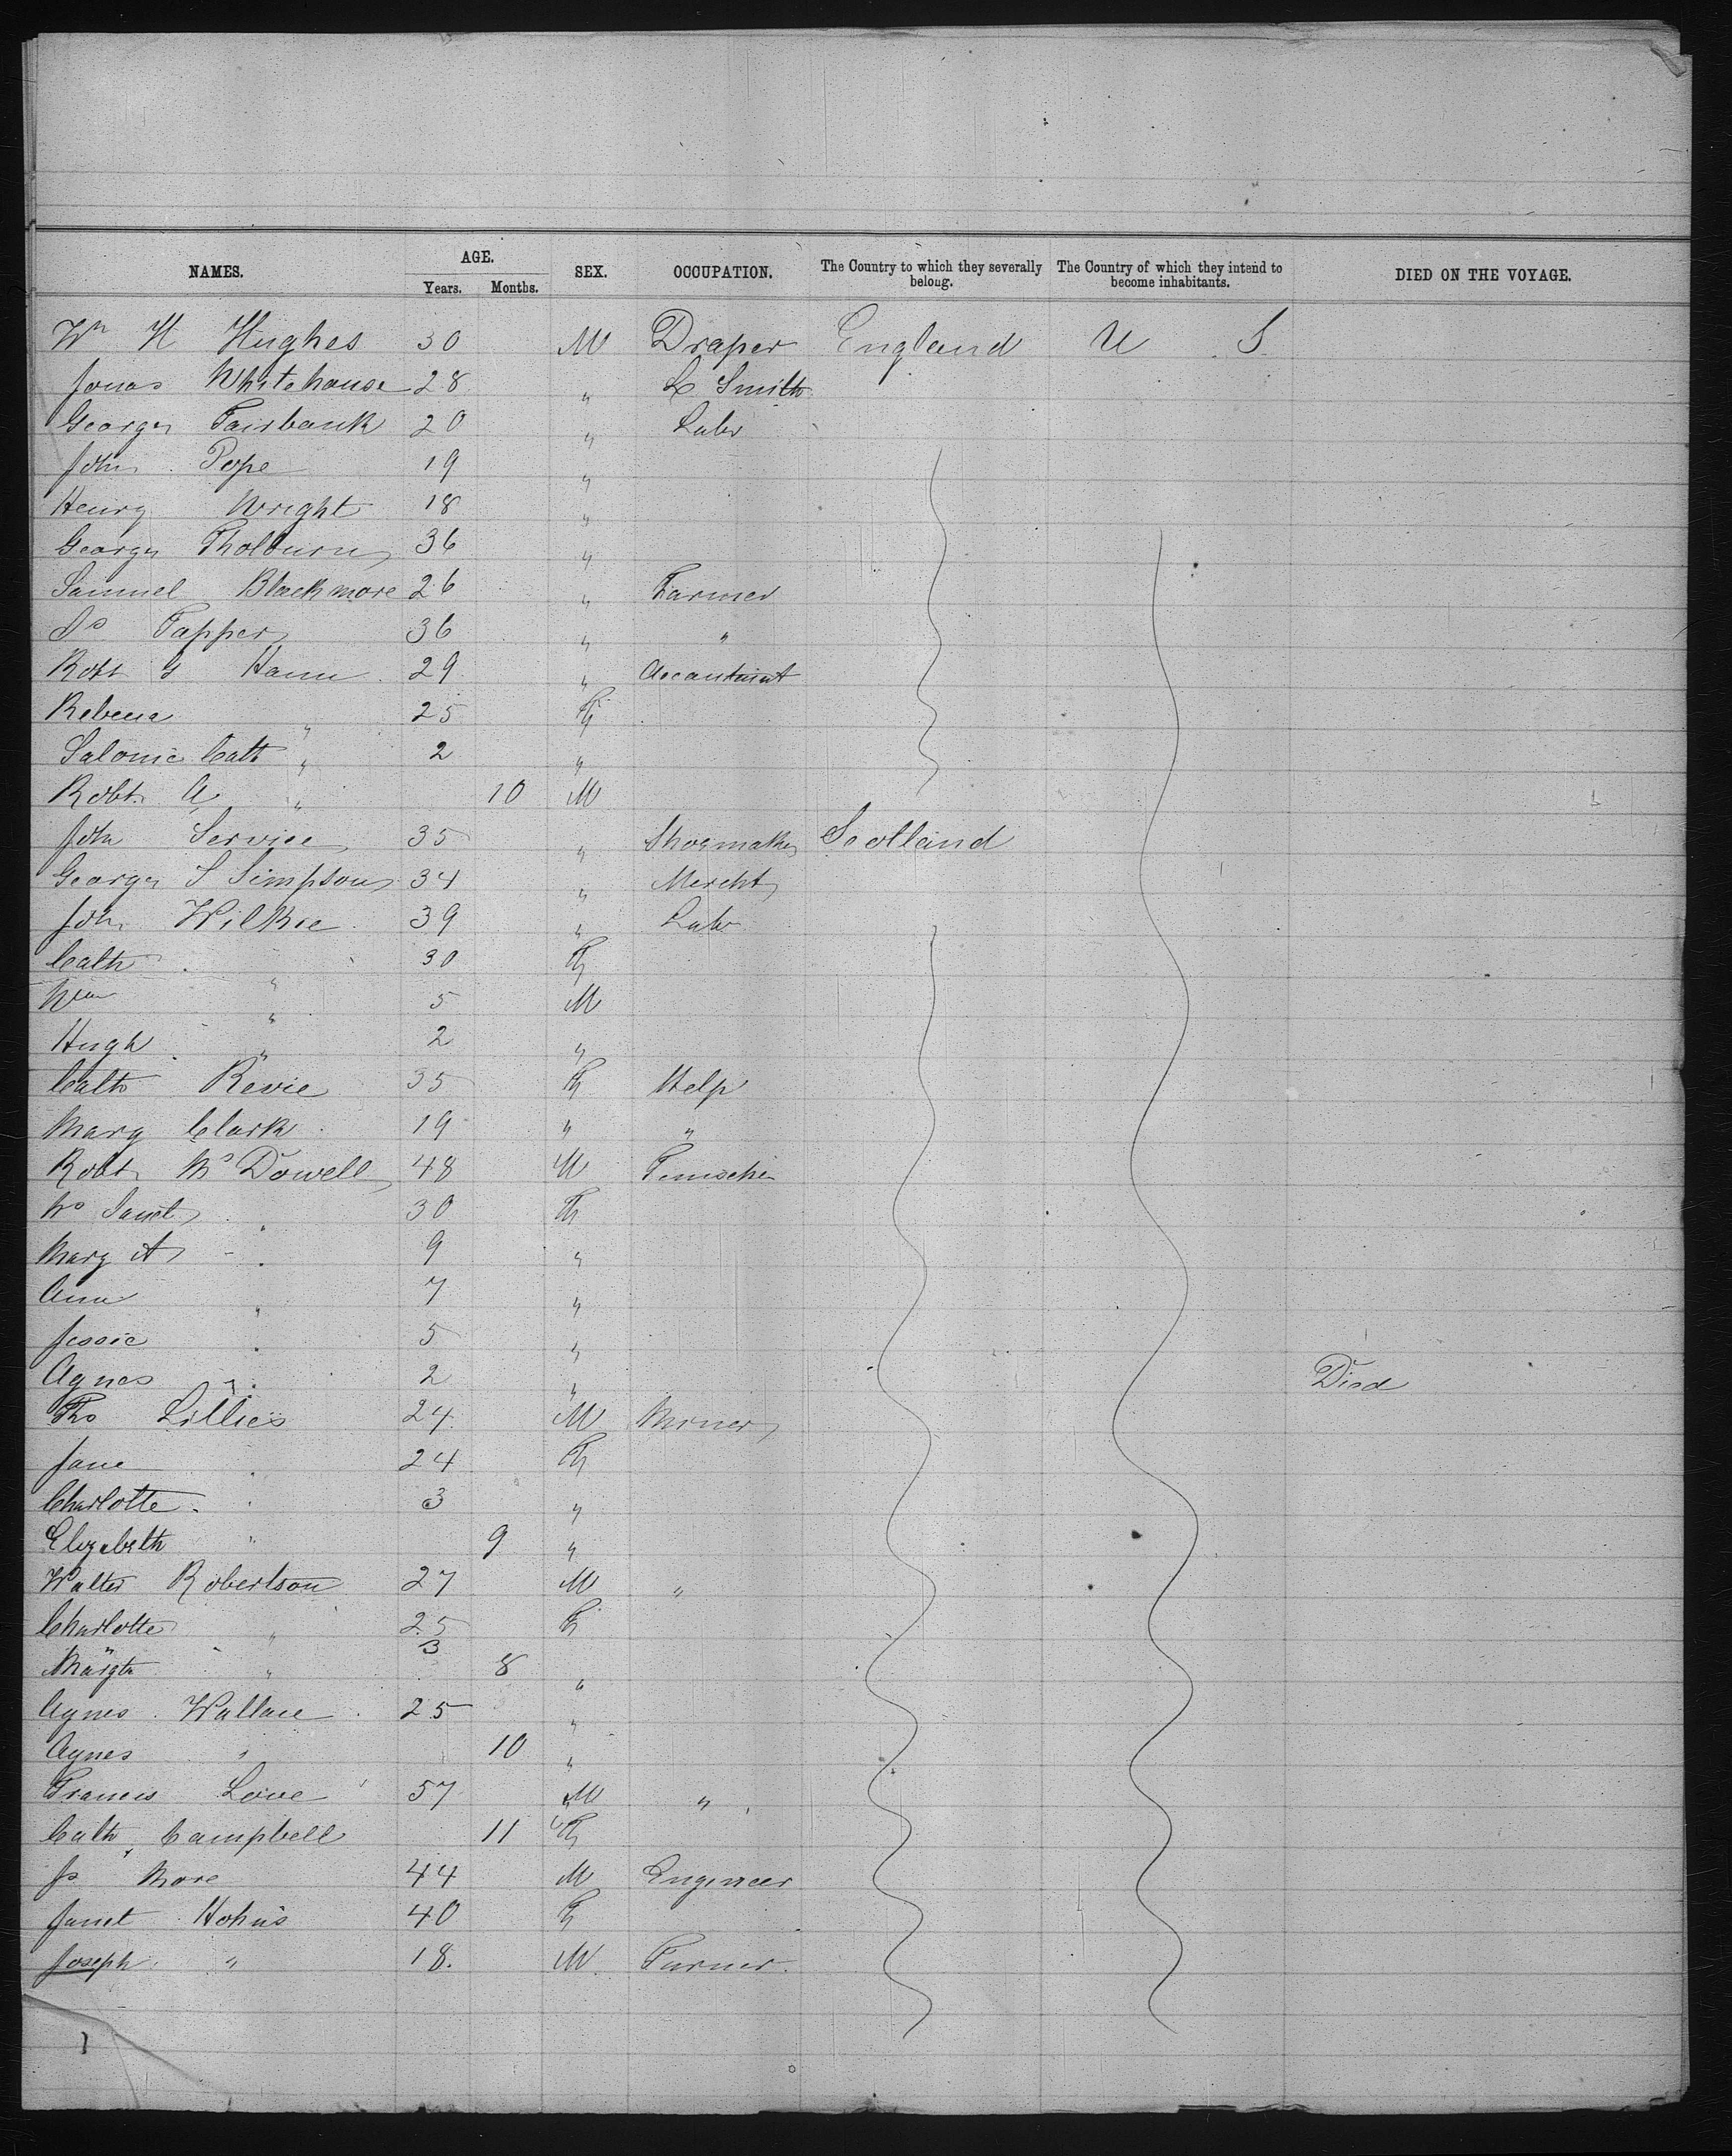 NAMES. AGE. SEX. OCCUPATION. The Country to which they severally belong. The Country of which they intend to become inhabitants. DIED ON THE VOYAGE.
Years. Months.
Wm H Hughes 30 M Draper England U S
Jonas Whitehouse 28 " L Smith
George Fairbank 20 " Labr
John Pope 19 "
Henry Wright 18 "
George Tholburn 36 "
Samuel Blackmore 26 " Farmer
Js Tapper 36 " "
Robt G Hann 29 " Accountant
Rebecca " 25 F
Salome Cath " 2 "
Robt A " 10 M
John Service 35 " Shoemaker Scotland
George S Simpson 34 " Mercht
John Wilkie 39 " Labr
Cath " 30 F
Wm " 5 M
Hugh " 2 "
Cath Revie 35 F Help
Mary Clark 19 " "
Robt McDowell 48 M
Janet " 30 F
Mary A " 9 "
Ann " 7 "
Jessie " 5 "
Agnes " 2 " Died
Tho Lillies 24 M Miner
Jane " 24 F
Charlotte " 3 "
Elizabeth " 9 "
Walter Robertson 27 M "
Charlotte " 25 F
Margt " 3 8 "
Agnes Wallace 25 "
Agnes " 10 "
Francis Love 57 M "
Cath Campbell 11 F
Js More 44 M Engineer
Janet 40 F
Joseph " 18. M Turner